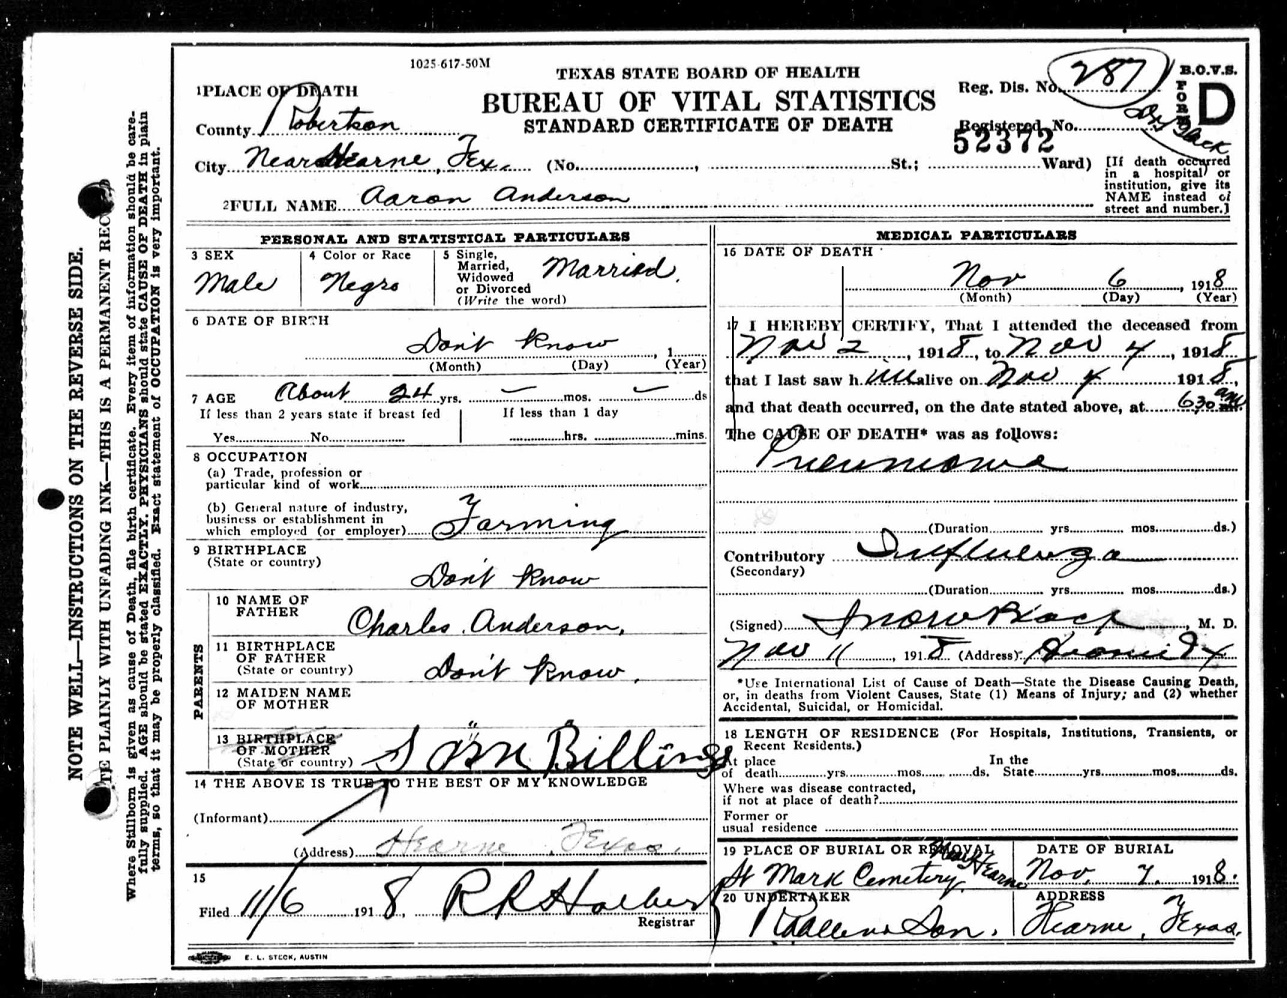 1025-617-50M
TEXAS STATE BOARD OF HEALTH
BUREAU OF VITAL STATISTICS
STANDARD CERTIFICATE OF DEATH
Reg. Dis. No. 287
Registered No.
52372
B.O.V.S.
FORM D
1 PLACE OF DEATH
County Robertson
City Near Hearne, Tex. (No. , St.; Ward)
[If death occurred
in a hospital or
institution, give its
NAME instead of
street and number.]
2 FULL NAME Aaron Anderson
PERSONAL AND STATISTICAL PARTICULARS
3 SEX
Male
4 Color or Race
Negro
5 Single,
Married,
Widowed
or Divorced
(Write the word)
Married.
6 DATE OF BIRTH
Don't Know , 1
(Month) (Day) (Year)
7 AGE About 24 yrs. — mos. — ds
If less than 2 years state if breast fed
Yes No
If less than 1 day
hrs. mins.
8 OCCUPATION
(a) Trade, profession or
particular kind of work
(b) General nature of industry,
business or establishment in
which employed (or employer) Farming
9 BIRTHPLACE
(State or country)
Don't Know
PARENTS
10 NAME OF
FATHER
Charles Anderson.
11 BIRTHPLACE
OF FATHER
(State or country) Don't Know.
12 MAIDEN NAME
OF MOTHER
13 BIRTHPLACE
OF MOTHER
(State or country) Sam Billings
14 THE ABOVE IS TRUE TO THE BEST OF MY KNOWLEDGE
(Informant)
(Address) Hearne, Texas.
15
Filed 11/6 1918.
Registrar
E. L. STECK, AUSTIN
MEDICAL PARTICULARS
16 DATE OF DEATH
Nov 6, 1918
(Month) (Day) (Year)
17 I HEREBY CERTIFY, That I attended the deceased from
Nov 2, 1918, to Nov 4, 1918
that I last saw him alive on Nov 4 1918,
and that death occurred, on the date stated above, at 630 am
The CAUSE OF DEATH* was as follows:
Pneumonia
(Duration yrs. mos. ds.)
Contributory Influenza
(Secondary)
(Duration yrs. mos. ds.)
(Signed) , M. D.
Nov 11, 1918 (Address) Hearne Tx
*Use International List of Cause of Death—State the Disease Causing Death,
or, in deaths from Violent Causes, State (1) Means of Injury; and (2) whether
Accidental, Suicidal, or Homicidal.
18 LENGTH OF RESIDENCE (For Hospitals, Institutions, Transients, or
Recent Residents.)
At place
of death yrs. mos. ds.
In the
State yrs. mos. ds.
Where was disease contracted,
if not at place of death?
Former or
usual residence
19 PLACE OF BURIAL OR REMOVAL
St Mark Cemetery Near Hearne
DATE OF BURIAL
Nov. 7. 1918.
20 UNDERTAKER
Son.
ADDRESS
Hearne, Texas.
NOTE WELL—INSTRUCTIONS ON THE REVERSE SIDE.
TE PLAINLY WITH UNFADING INK—THIS IS A PERMANENT REC
Where Stillborn is given as cause of Death, file birth certificate. Every item of information should be care-
fully supplied. AGE should be stated EXACTLY. PHYSICIANS should state CAUSE OF DEATH in plain
terms, so that it may be properly classified. Exact statement of OCCUPATION is very important.